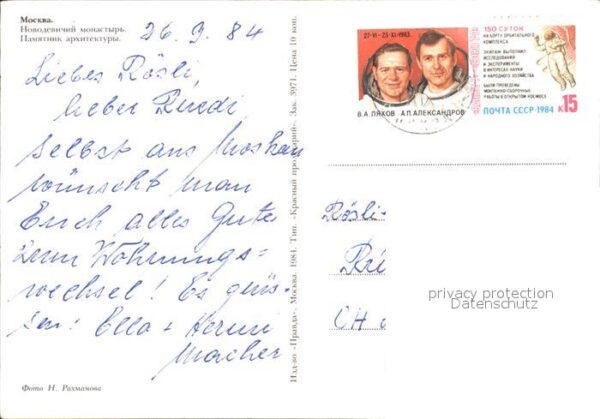 Москва.
Новодевичий монастырь.
Памятник архитектуры.
26.9.84
Liebes Rösli,
lieber Ruedi
Selbst aus Moskau
wünscht man
Euch alles Gute
zum Wohnungs=
wechsel! Es grüs-
sen: Ella + Hermi
Macher
Фото Н. Рахманова
Изд-во «Правда». Москва. 1984. Тип. «Красный пролетарий». Зак. 3971. Цена 10 коп.
27·VI-23·XI·1983
В.А.ЛЯХОВ А.П.АЛЕКСАНДРОВ
150 СУТОК
НА БОРТУ ОРБИТАЛЬНОГО
КОМПЛЕКСА
ЭКИПАЖ ВЫПОЛНИЛ
ИССЛЕДОВАНИЯ
И ЭКСПЕРИМЕНТЫ
В ИНТЕРЕСАХ НАУКИ
И НАРОДНОГО ХОЗЯЙСТВА
БЫЛИ ПРОВЕДЕНЫ
МОНТАЖНО-СБОРОЧНЫЕ
РАБОТЫ В ОТКРЫТОМ КОСМОСЕ
ПОЧТА СССР·1984 К15
Rösli
CH
privacy protection
Datenschutz